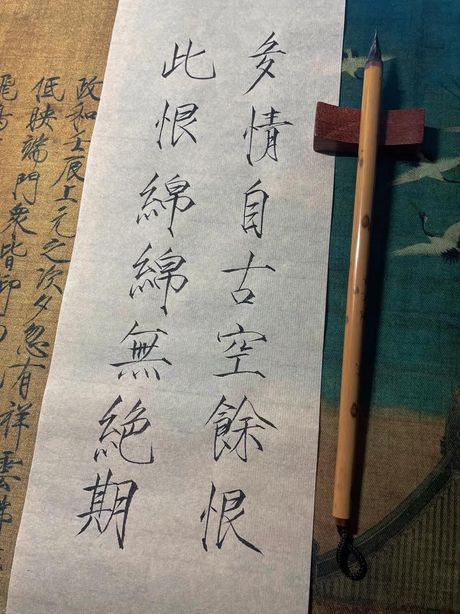 多情自古空餘恨
此恨綿綿無絕期
政和壬辰上元之次夕忽有祥雲拂
低映端門衆皆仰